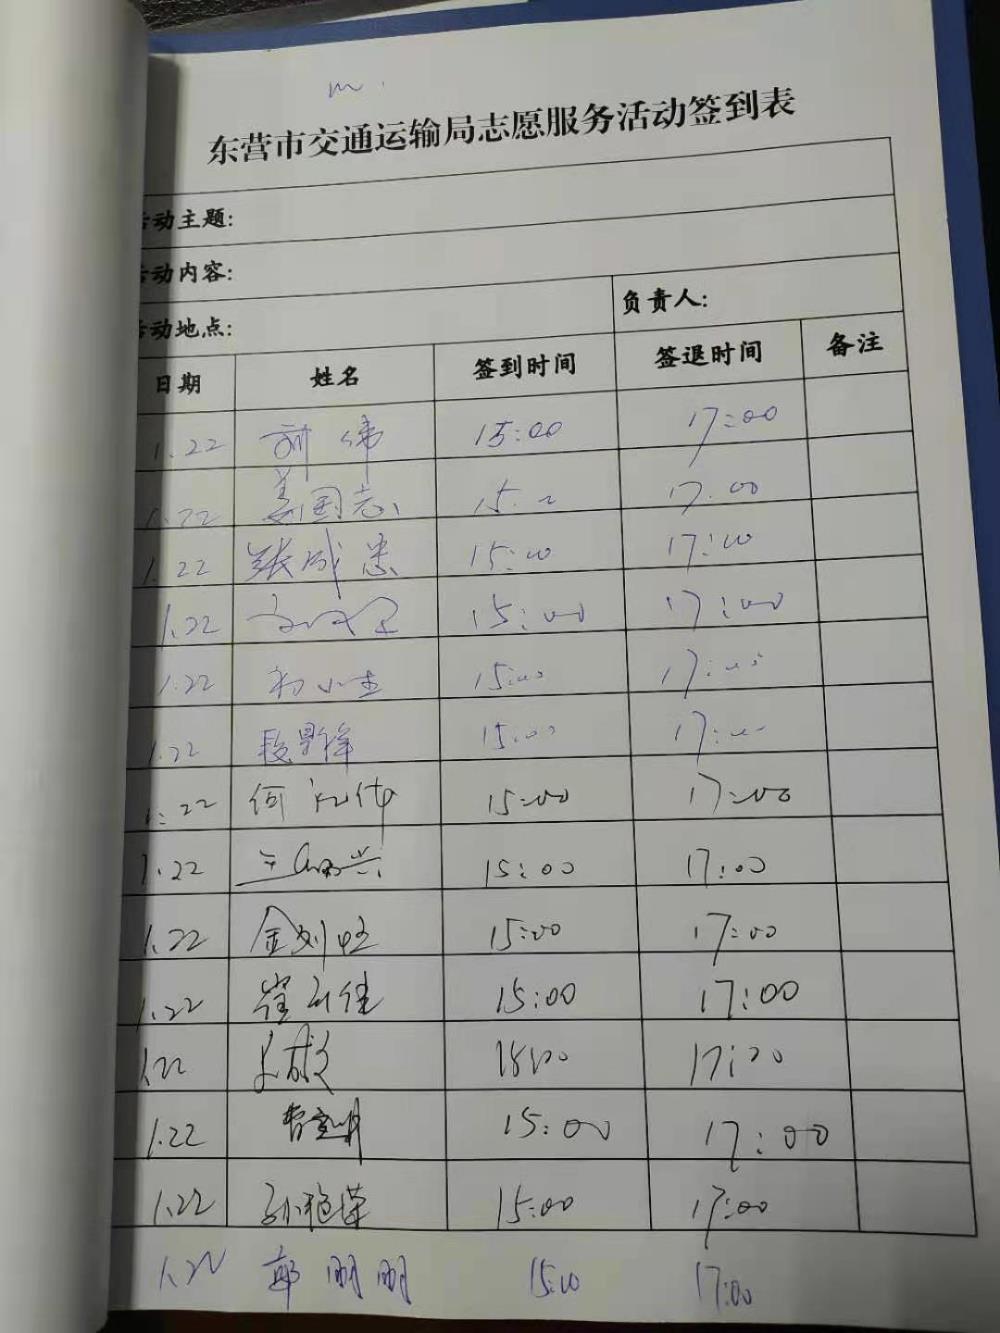 东营市交通运输局志愿服务活动签到表
活动主题:
活动内容:
活动地点: 负责人:
日期 姓名 签到时间 签退时间 备注
1.22 15:00 17:00
1.22 姜国志 15. 17.00
1.22 张成忠 15:00 17:00
1.22 15:00 17:00
1.22 初小 15:00 17:00
1.22 段 15:00 17:00
1.22 何 伟 15:00 17:00
1.22 王 兴 15:00 17:00
1.22 金刘 15:00 17:00
1.22 崔 佳 15:00 17:00
1.22 17:00
1.22 曹 明 15:00 17:00
1.22 孙艳萍 15:00 17:00
1.22 郭明明 15:00 17:00